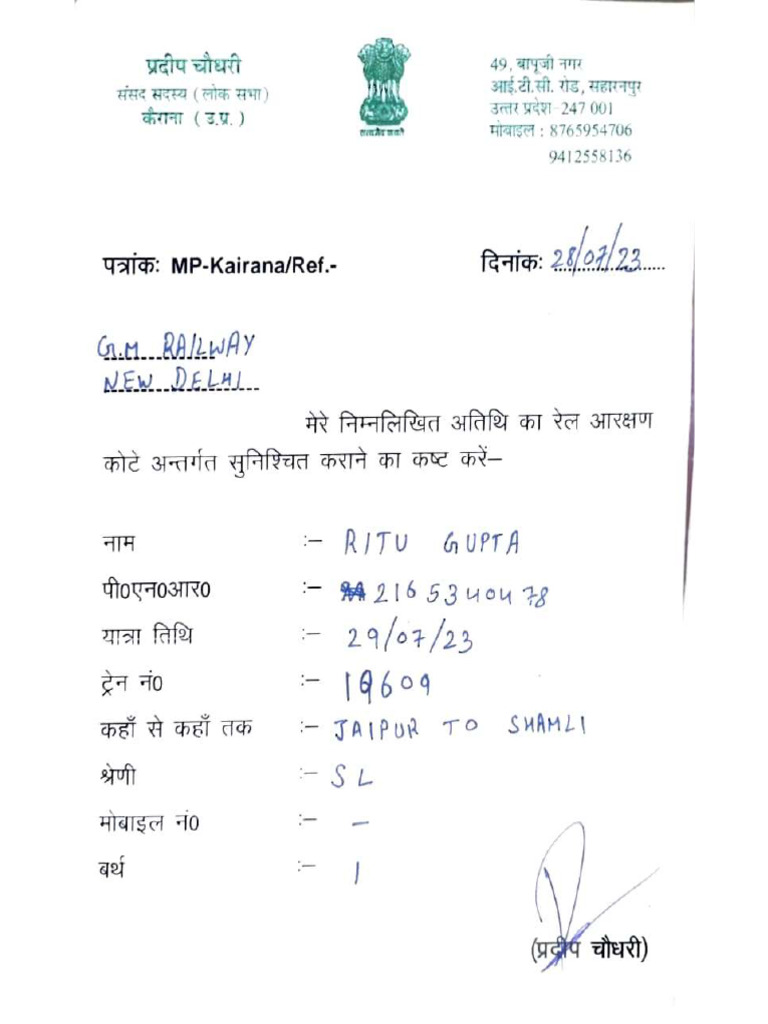 प्रदीप चौधरी
संसद सदस्य (लोक सभा)
कैराना (उ.प्र.)
सत्यमेव जयते
49, बापूजी नगर
आई.टी.सी. रोड, सहारनपुर
उत्तर प्रदेश-247 001
मोबाइल : 8765954706
9412558136
पत्रांकः MP-Kairana/Ref.-
दिनांकः 28/07/23
G.M RAILWAY
NEW DELHI
मेरे निम्नलिखित अतिथि का रेल आरक्षण
कोटे अन्तर्गत सुनिश्चित कराने का कष्ट करें–
नाम :- RITU GUPTA
पी0एन0आर0 :- 2165340478
यात्रा तिथि :- 29/07/23
ट्रेन नं0 :- 19609
कहाँ से कहाँ तक :- JAIPUR TO SHAMLI
श्रेणी :- SL
मोबाइल नं0 :- –
बर्थ :- 1
(प्रदीप चौधरी)